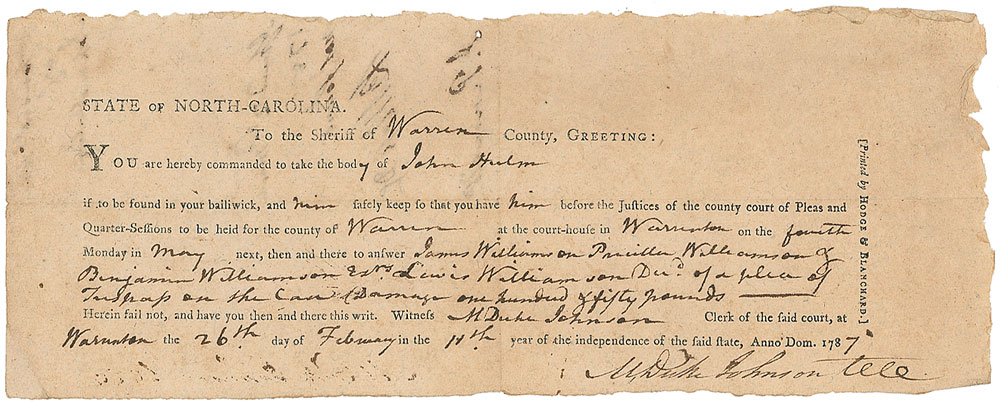 STATE OF NORTH-CAROLINA.
To the Sheriff of Warren County, GREETING:
YOU are hereby commanded to take the body of John Hulm
if to be found in your bailiwick, and him safely keep so that you have him before the Justices of the county court of Pleas and
Quarter-Sessions to be held for the county of Warren at the court-house in Warrenton on the fourth
Monday in May next, then and there to answer James Williamson Priscilla Williamson &
Benjamin Williamson Exrs Lewis Williamson Decd. of a plea of
Trespass on the Case Damage one hundred & fifty pounds
Herein fail not, and have you then and there this writ. Witness M Duke Johnson Clerk of the said court, at
Warrenton the 26th day of February in the 11th year of the independence of the said state, Anno Dom. 1787
M Duke Johnson
[Printed by HODGE & BLANCHARD.]